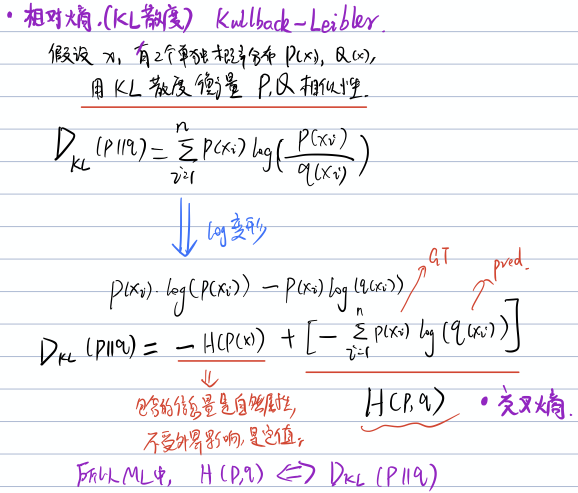 • 相对熵.(KL散度) Kullback-Leibler.
假设 x, 有2个单独概率分布 P(x), Q(x),
用 KL 散度衡量 P,Q 相似性.
D_KL (p||q) = Σ_{i=1}^{n} p(xi) log( p(xi) / q(xi) )
log变形
p(xi)·log(p(xi)) - p(xi)log(q(xi))
GT pred.
D_KL (p||q) = - H(P(x)) + [ - Σ_{i=1}^{n} p(xi) log(q(xi)) ]
包含的信息量是自然属性,
不受外界影响,是定值。
H(p,q) • 交叉熵.
所以ML中, H(p,q) <=> D_KL (p||q)